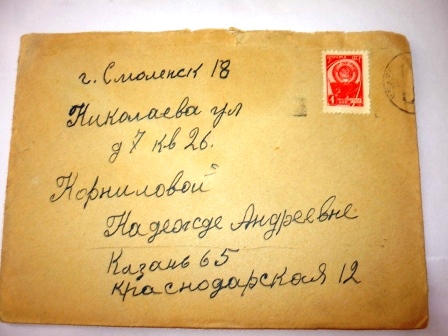 г. Смоленск 18
Николаева ул
д 7 кв 26.
Корниловой
Надежде Андреевне
Казань 65
Краснодарская 12
4